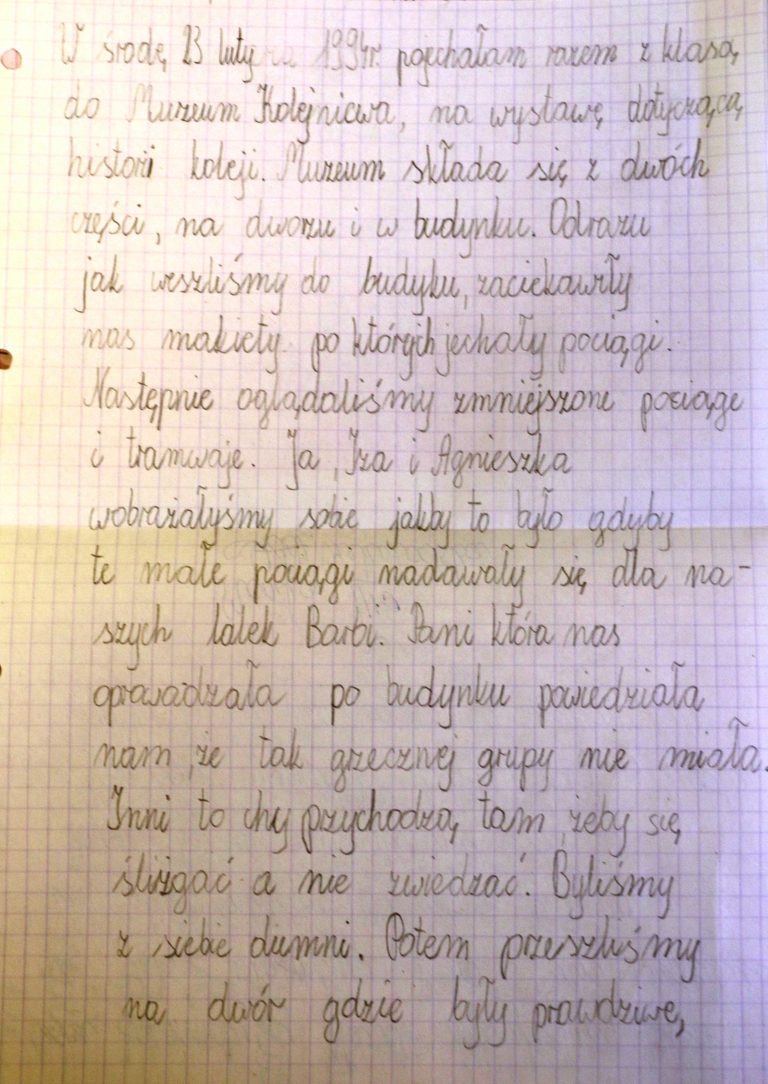 W środę 23 lutyna 1994r. pojechałam razem z klasą,
do Muzeum Kolejnicwa, na wystawę dotyczącą
historii koleji. Muzeum składa się z dwóch
części, na dworzu i w budynku. Odrazu
jak weszliśmy do budyku, zaciekawiły
nas makiety po których jechały pociągi.
Następnie oglądaliśmy zmniejszone pociąge
i tramwaje. Ja, Iza i Agnieszka
wobrażałyśmy sobie jakby to było gdyby
te małe pociągi nadawały się dla na-
szych lalek Barbi. Pani która nas
oprowadzała po budynku powiedziała
nam, że tak grzecznej grupy nie miała.
Inni to chy przychodzą tam, żeby się
śliżgać a nie zwiedzać. Byliśmy
z siebie dumni. Potem przeszliśmy
na dwór gdzie były prawdziwe,